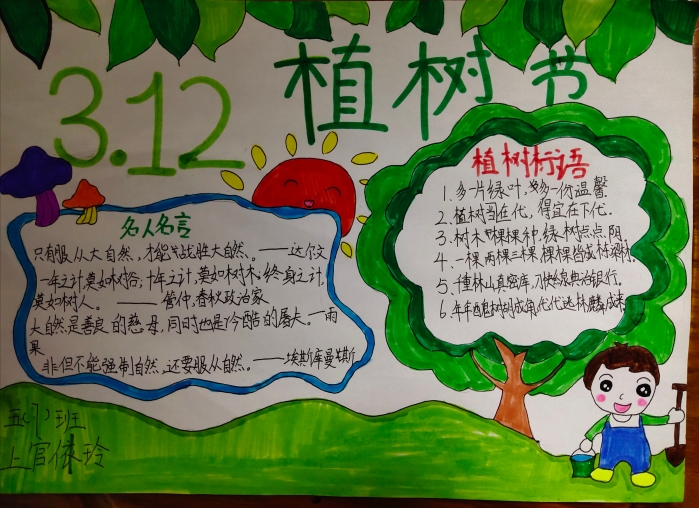 3.12 植树节
名人名言
只有服从大自然,才能战胜大自然。——达尔文
一年之计,莫如树谷,十年之计,莫如树木,终身之计,
莫如树人。——管仲,春秋政治家
大自然是善良的慈母,同时也是冷酷的屠夫。——雨
果
非但不能强制自然,还要服从自然。——埃斯库曼斯
植树标语
1. 多一片绿叶,多一份温馨
2. 植树在代,得宜在下代.
3. 树木棵棵种,绿树点点阴
4. 一棵两棵三棵棵棵皆成栋梁材.
5. 山真密库,银行.
6. 年年树成代代成
五 班
上官 玲